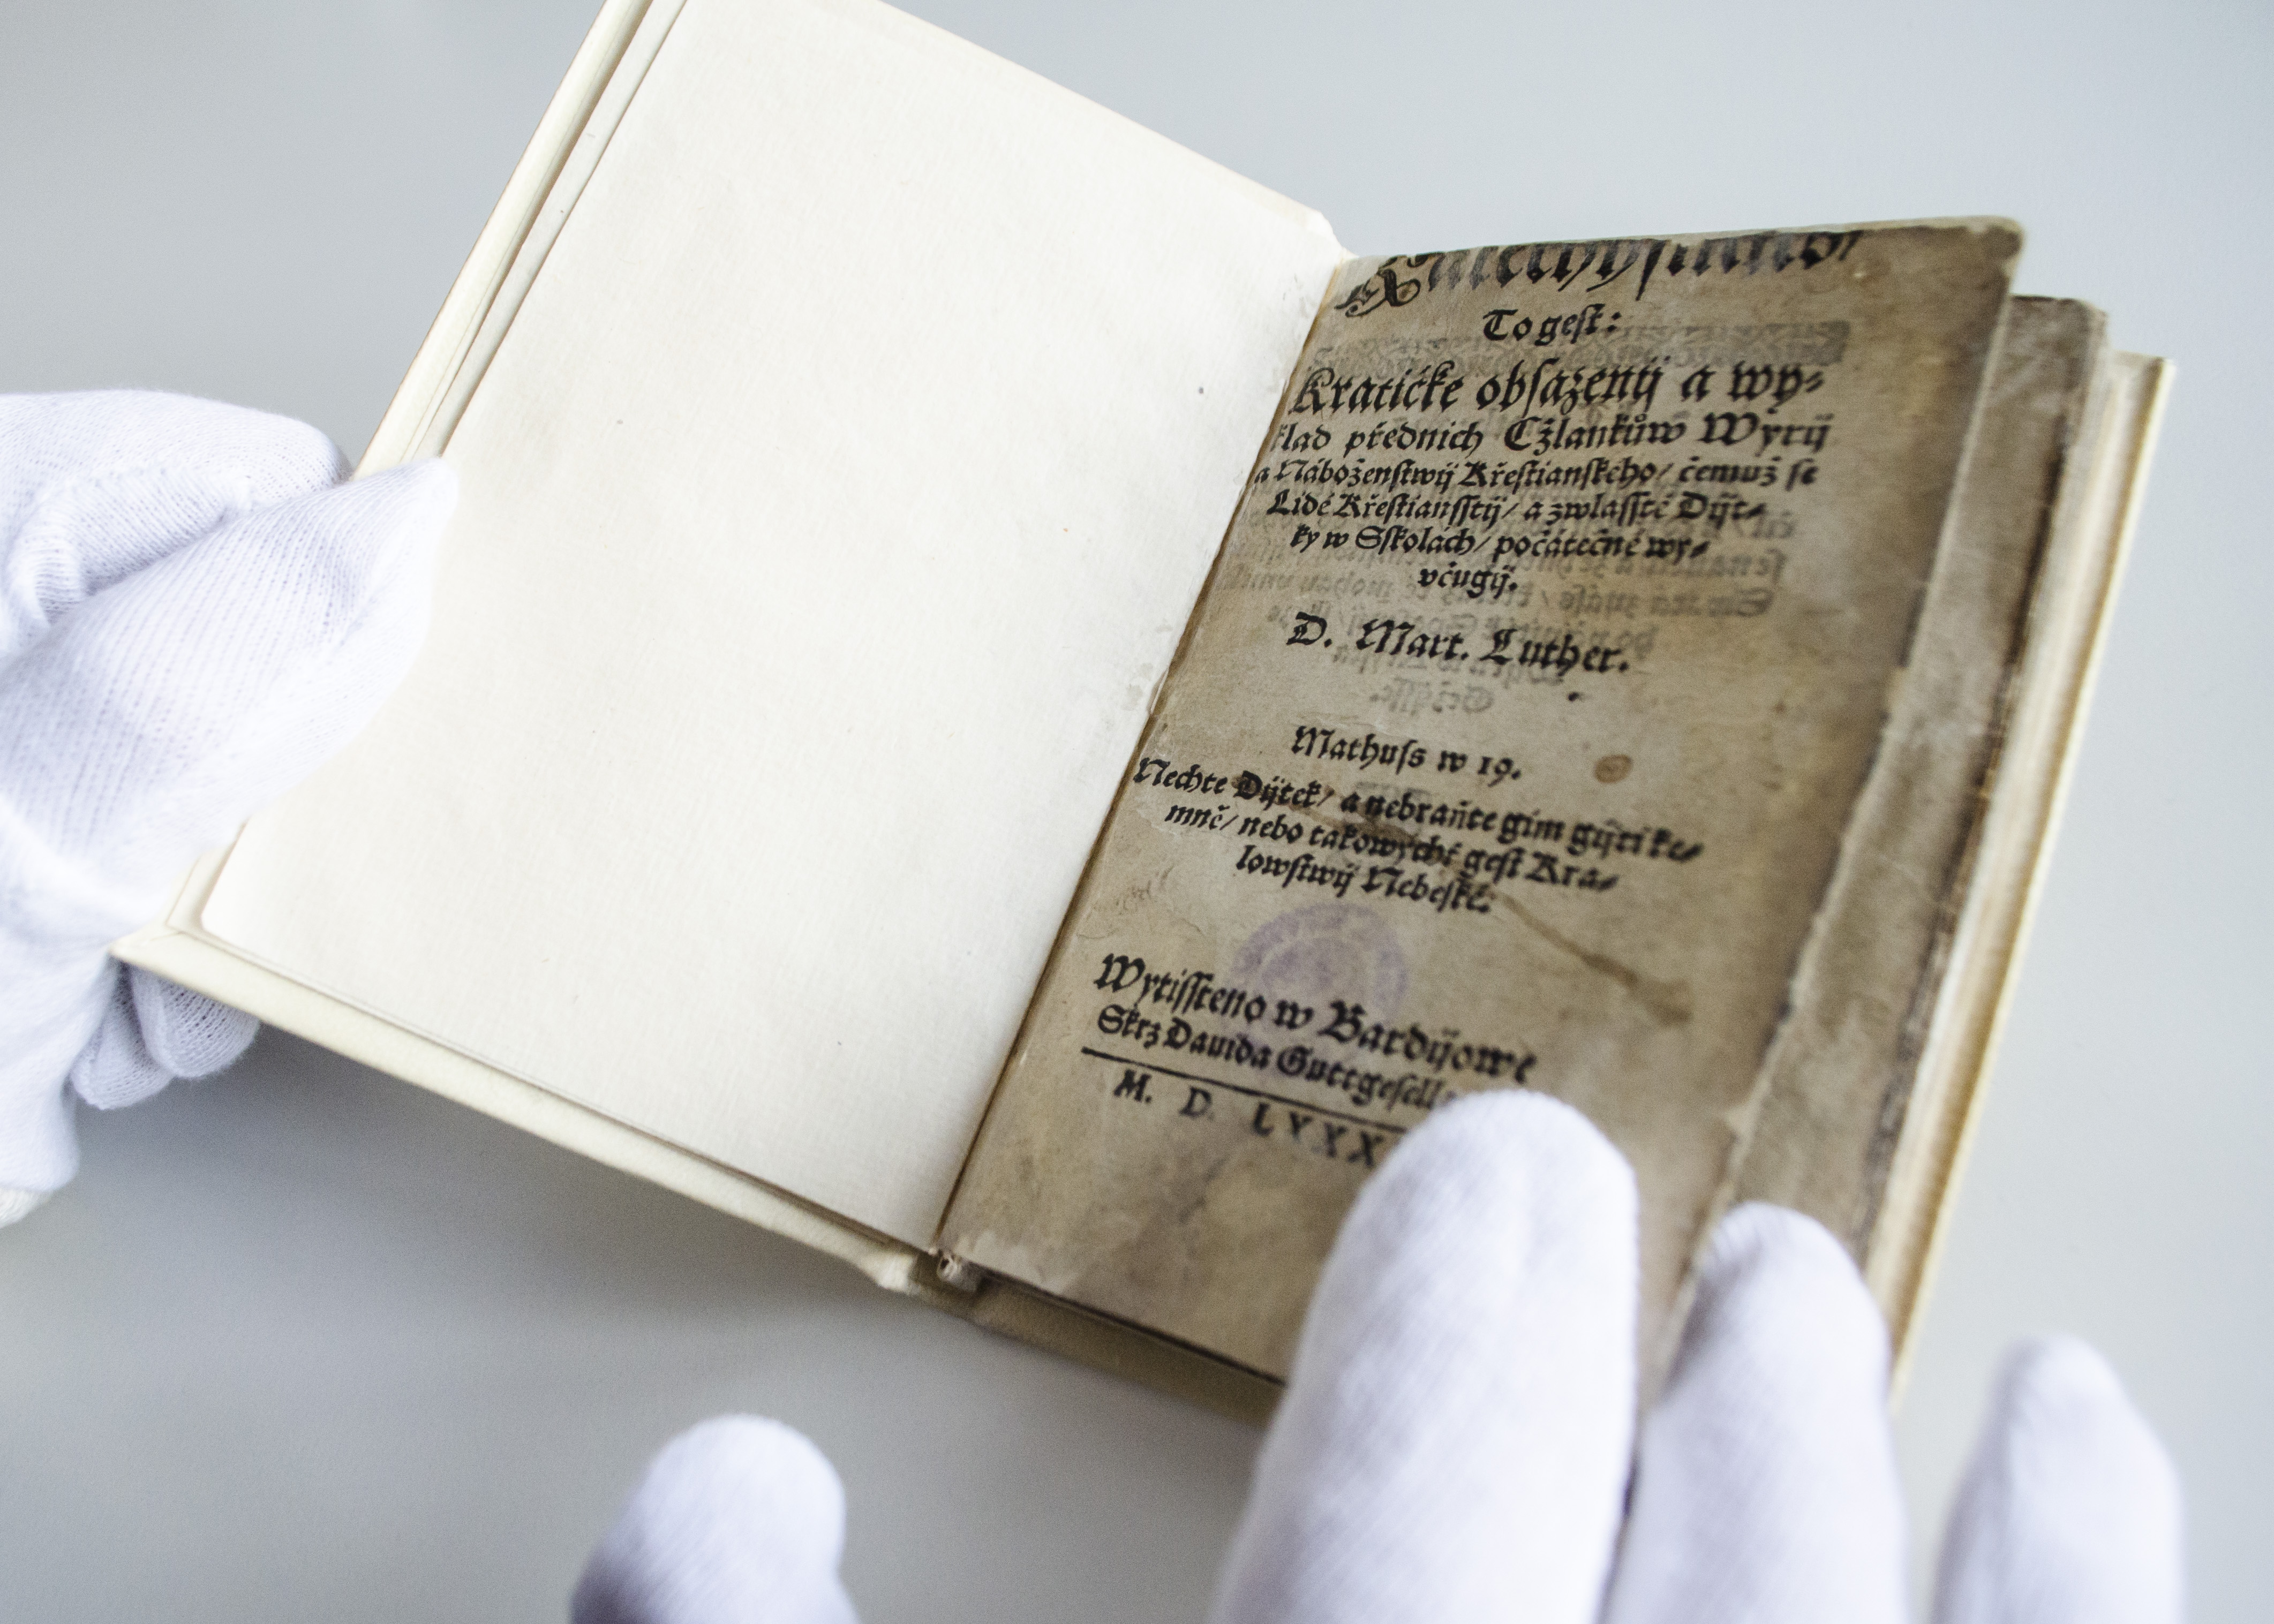 Katechysmus/
To geſt:
Kratičke obſazenij a wy⸗
klad přednich Cžlankůw Wyrij
a Náboženſtwij Křeſtianſkého/ čemuž ſe
Lidé Křeſtianſſtij/ a zwlaſſtě Dijt⸗
ky w Sſkolách/ počátečně wy⸗
včugij.
D. Mart. Luther.
Mathuſs w 19.
Nechte Dijtek/ a nebraňte gim gijti ke⸗
mně/ nebo takowýchť geſt Kra⸗
lowſtwij Nebeſké.
Wytiſſteno w Bardijowe
Skrz Dauida Guttgeſell
M. D. LXXX